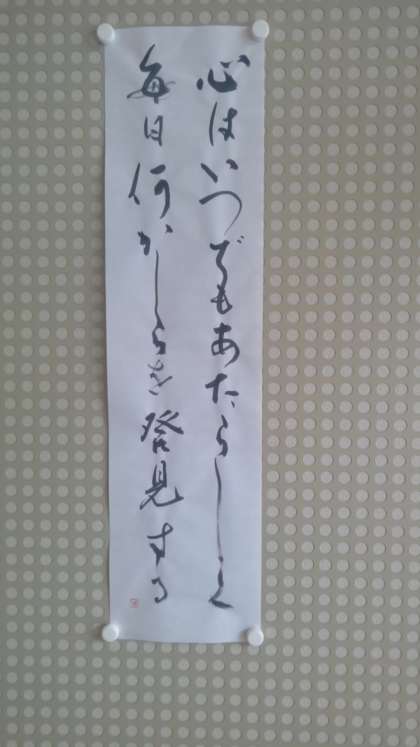 心はいつでもあたらしく
毎日何かしらを発見する